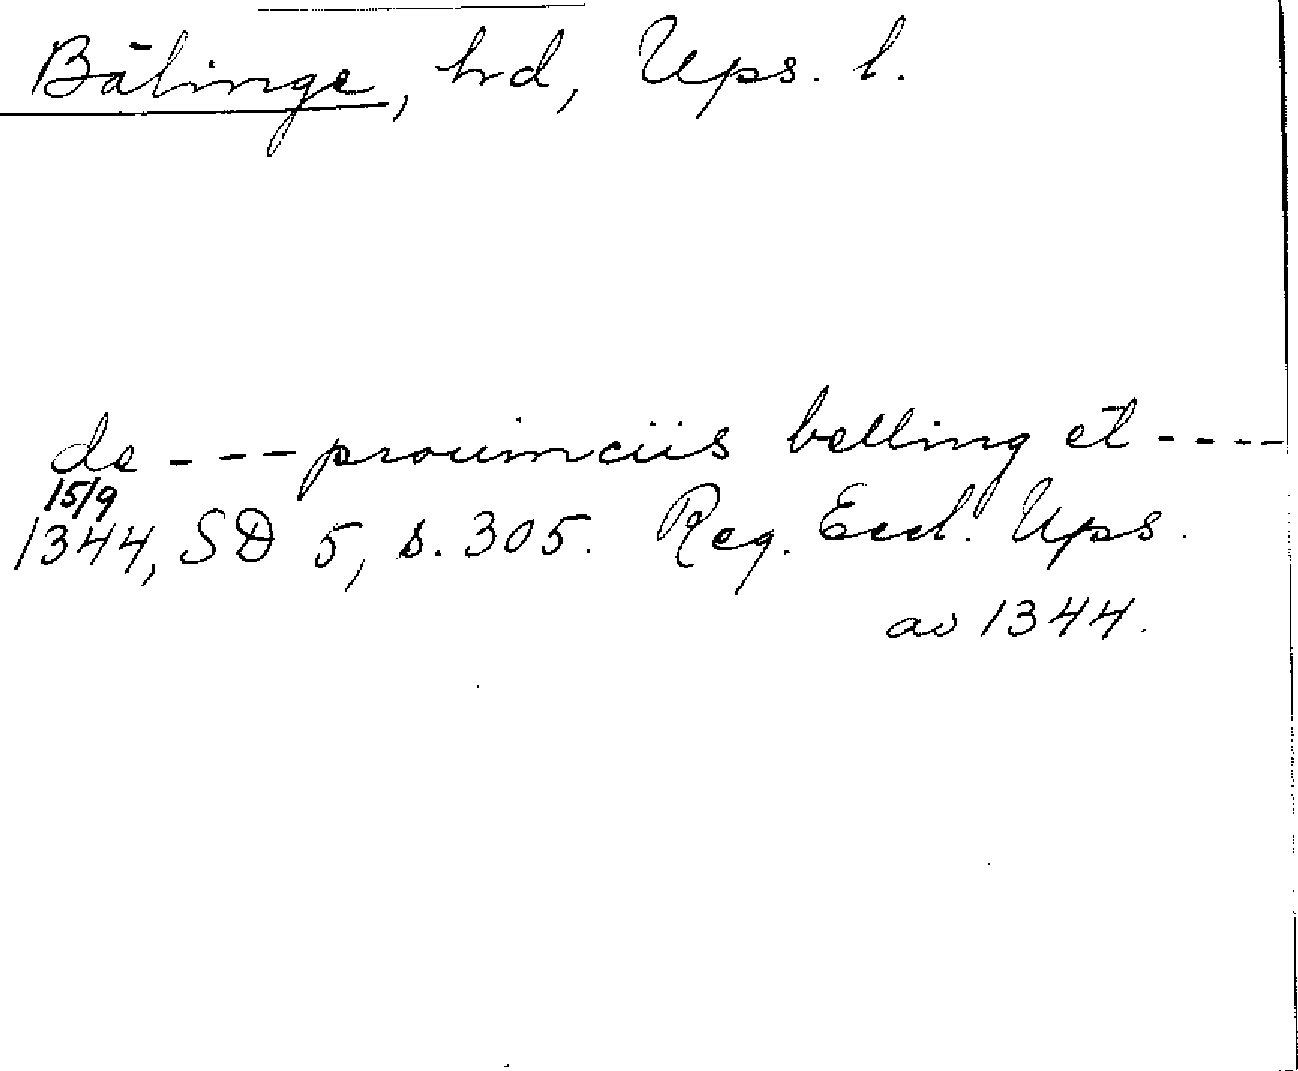 Bälinge, hrd, Ups. l.
de - - - prouinciis belling et - - - -
15/9
1344, SD 5, s. 305. Reg. Eccl. Ups.
av 1344.